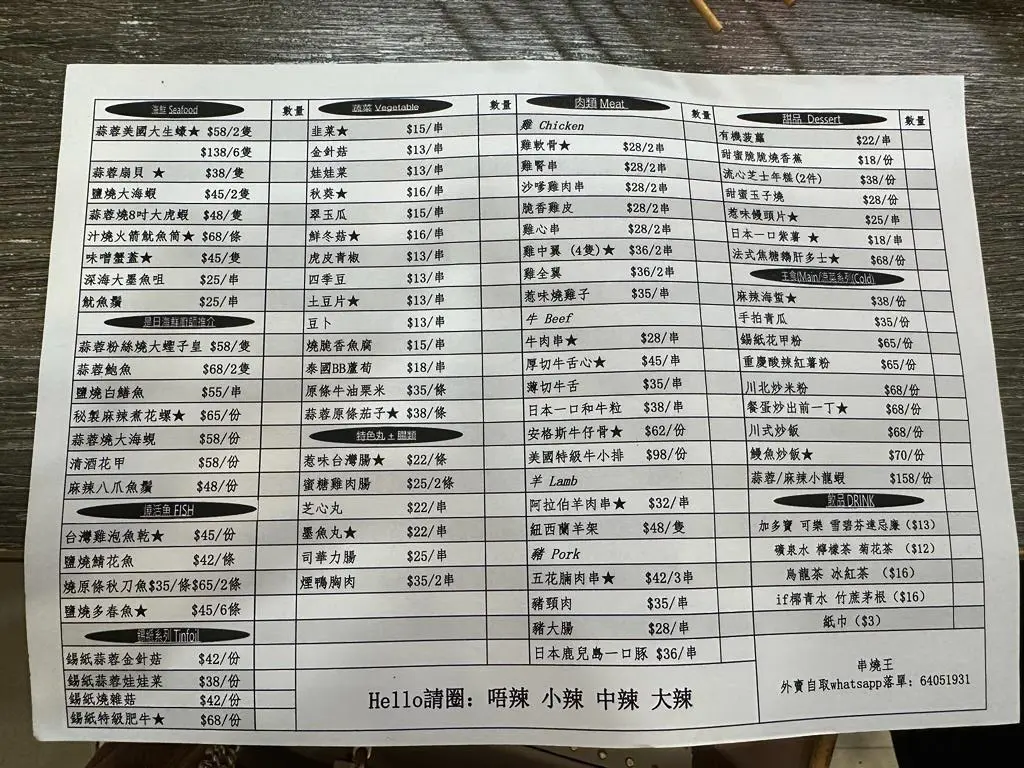 海鮮 Seafood 數量
蒜蓉美國大生蠔★ $58/2隻
$138/6隻
蒜蓉扇貝 ★ $38/隻
鹽燒大海蝦 $45/2隻
蒜蓉燒8吋大虎蝦 $48/隻
汁燒火箭魷魚筒★ $68/條
味噌蟹蓋★ $45/隻
深海大墨魚咀 $25/串
魷魚鬚 $25/串
是日海鮮廚師推介
蒜蓉粉絲燒大蟶子皇 $58/隻
蒜蓉鮑魚 $68/2隻
鹽燒白鱔魚 $55/串
秘製麻辣煮花螺★ $65/份
蒜蓉燒大海蜆 $58/份
清酒花甲 $58/份
麻辣八爪魚鬚 $48/份
燒活魚 FISH
台灣雞泡魚乾★ $45/份
鹽燒鯖花魚 $42/條
燒原條秋刀魚$35/條$65/2條
鹽燒多春魚★ $45/6條
錫紙系列 Tinfoil
錫紙蒜蓉金針菇 $42/份
錫紙蒜蓉娃娃菜 $38/份
錫紙燒雜菇 $42/份
錫紙特級肥牛★ $68/份
蔬菜 Vegetable 數量
韭菜★ $15/串
金針菇 $13/串
娃娃菜 $13/串
秋葵★ $16/串
翠玉瓜 $15/串
鮮冬菇★ $16/串
虎皮青椒 $13/串
四季豆 $13/串
土豆片★ $13/串
豆卜 $13/串
燒脆香魚腐 $15/串
泰國BB蘆荀 $18/串
原條牛油粟米 $35/條
蒜蓉原條茄子★ $38/條
特色丸+腸類
惹味台灣腸★ $22/條
蜜糖雞肉腸 $25/2條
芝心丸 $22/串
墨魚丸★ $22/串
司華力腸 $25/串
煙鴨胸肉 $35/2串
肉類 Meat 數量
雞 Chicken
雞軟骨★ $28/2串
雞腎串 $28/2串
沙嗲雞肉串 $28/2串
脆香雞皮 $28/2串
雞心串 $28/2串
雞中翼 (4隻)★ $36/2串
雞全翼 $36/2串
惹味燒雞子 $35/串
牛 Beef
牛肉串★ $28/串
厚切牛舌心★ $45/串
薄切牛舌 $35/串
日本一口和牛粒 $38/串
安格斯牛仔骨★ $62/份
美國特級牛小排 $98/份
羊 Lamb
阿拉伯羊肉串★ $32/串
紐西蘭羊架 $48/隻
豬 Pork
五花腩肉串★ $42/3串
豬頸肉 $35/串
豬大腸 $28/串
日本鹿兒島一口豚 $36/串
甜品 Dessert 數量
有機菠蘿 $22/串
甜蜜脆脆燒香蕉 $18/份
流心芝士年糕(2件) $38/份
甜蜜玉子燒 $28/份
惹味饅頭片★ $25/串
日本一口紫薯 ★ $18/串
法式焦糖鵝肝多士★ $68/份
主食(Main)/涼菜系列(Cold)
麻辣海蜇★ $38/份
手拍青瓜 $35/份
錫紙花甲粉 $65/份
重慶酸辣紅薯粉 $65/份
川北炒米粉 $68/份
餐蛋炒出前一丁★ $68/份
川式炒飯 $68/份
鰻魚炒飯★ $70/份
蒜蓉/麻辣小龍蝦 $158/份
飲品DRINK
加多寶 可樂 雪碧芬達忌廉($13)
礦泉水 檸檬茶 菊花茶 ($12)
烏龍茶 冰紅茶 ($16)
if椰青水 竹蔗茅根($16)
紙巾($3)
Hello請圈: 唔辣 小辣 中辣 大辣
串燒王
外賣自取whatsapp落單: 64051931